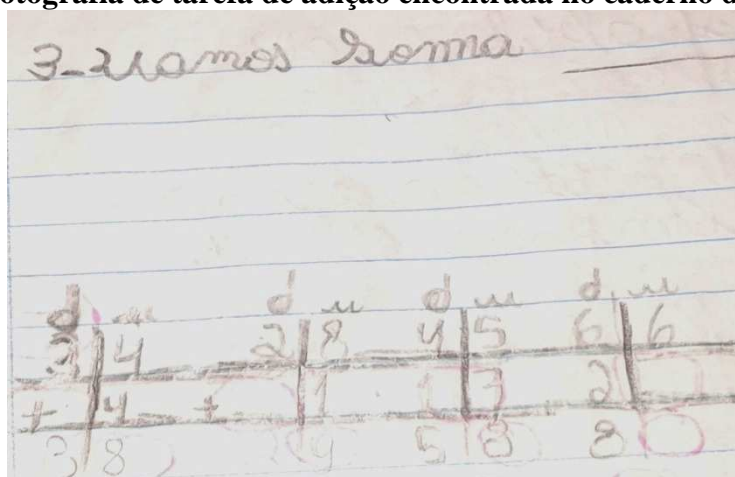 otografia de tarefa de adição encontrada no caderno d
3-Vamos Soma
d u d u d u d u
3 4 2 8 4 5 6 6
+ 4 + 1 1 2
3 8 5 8 8